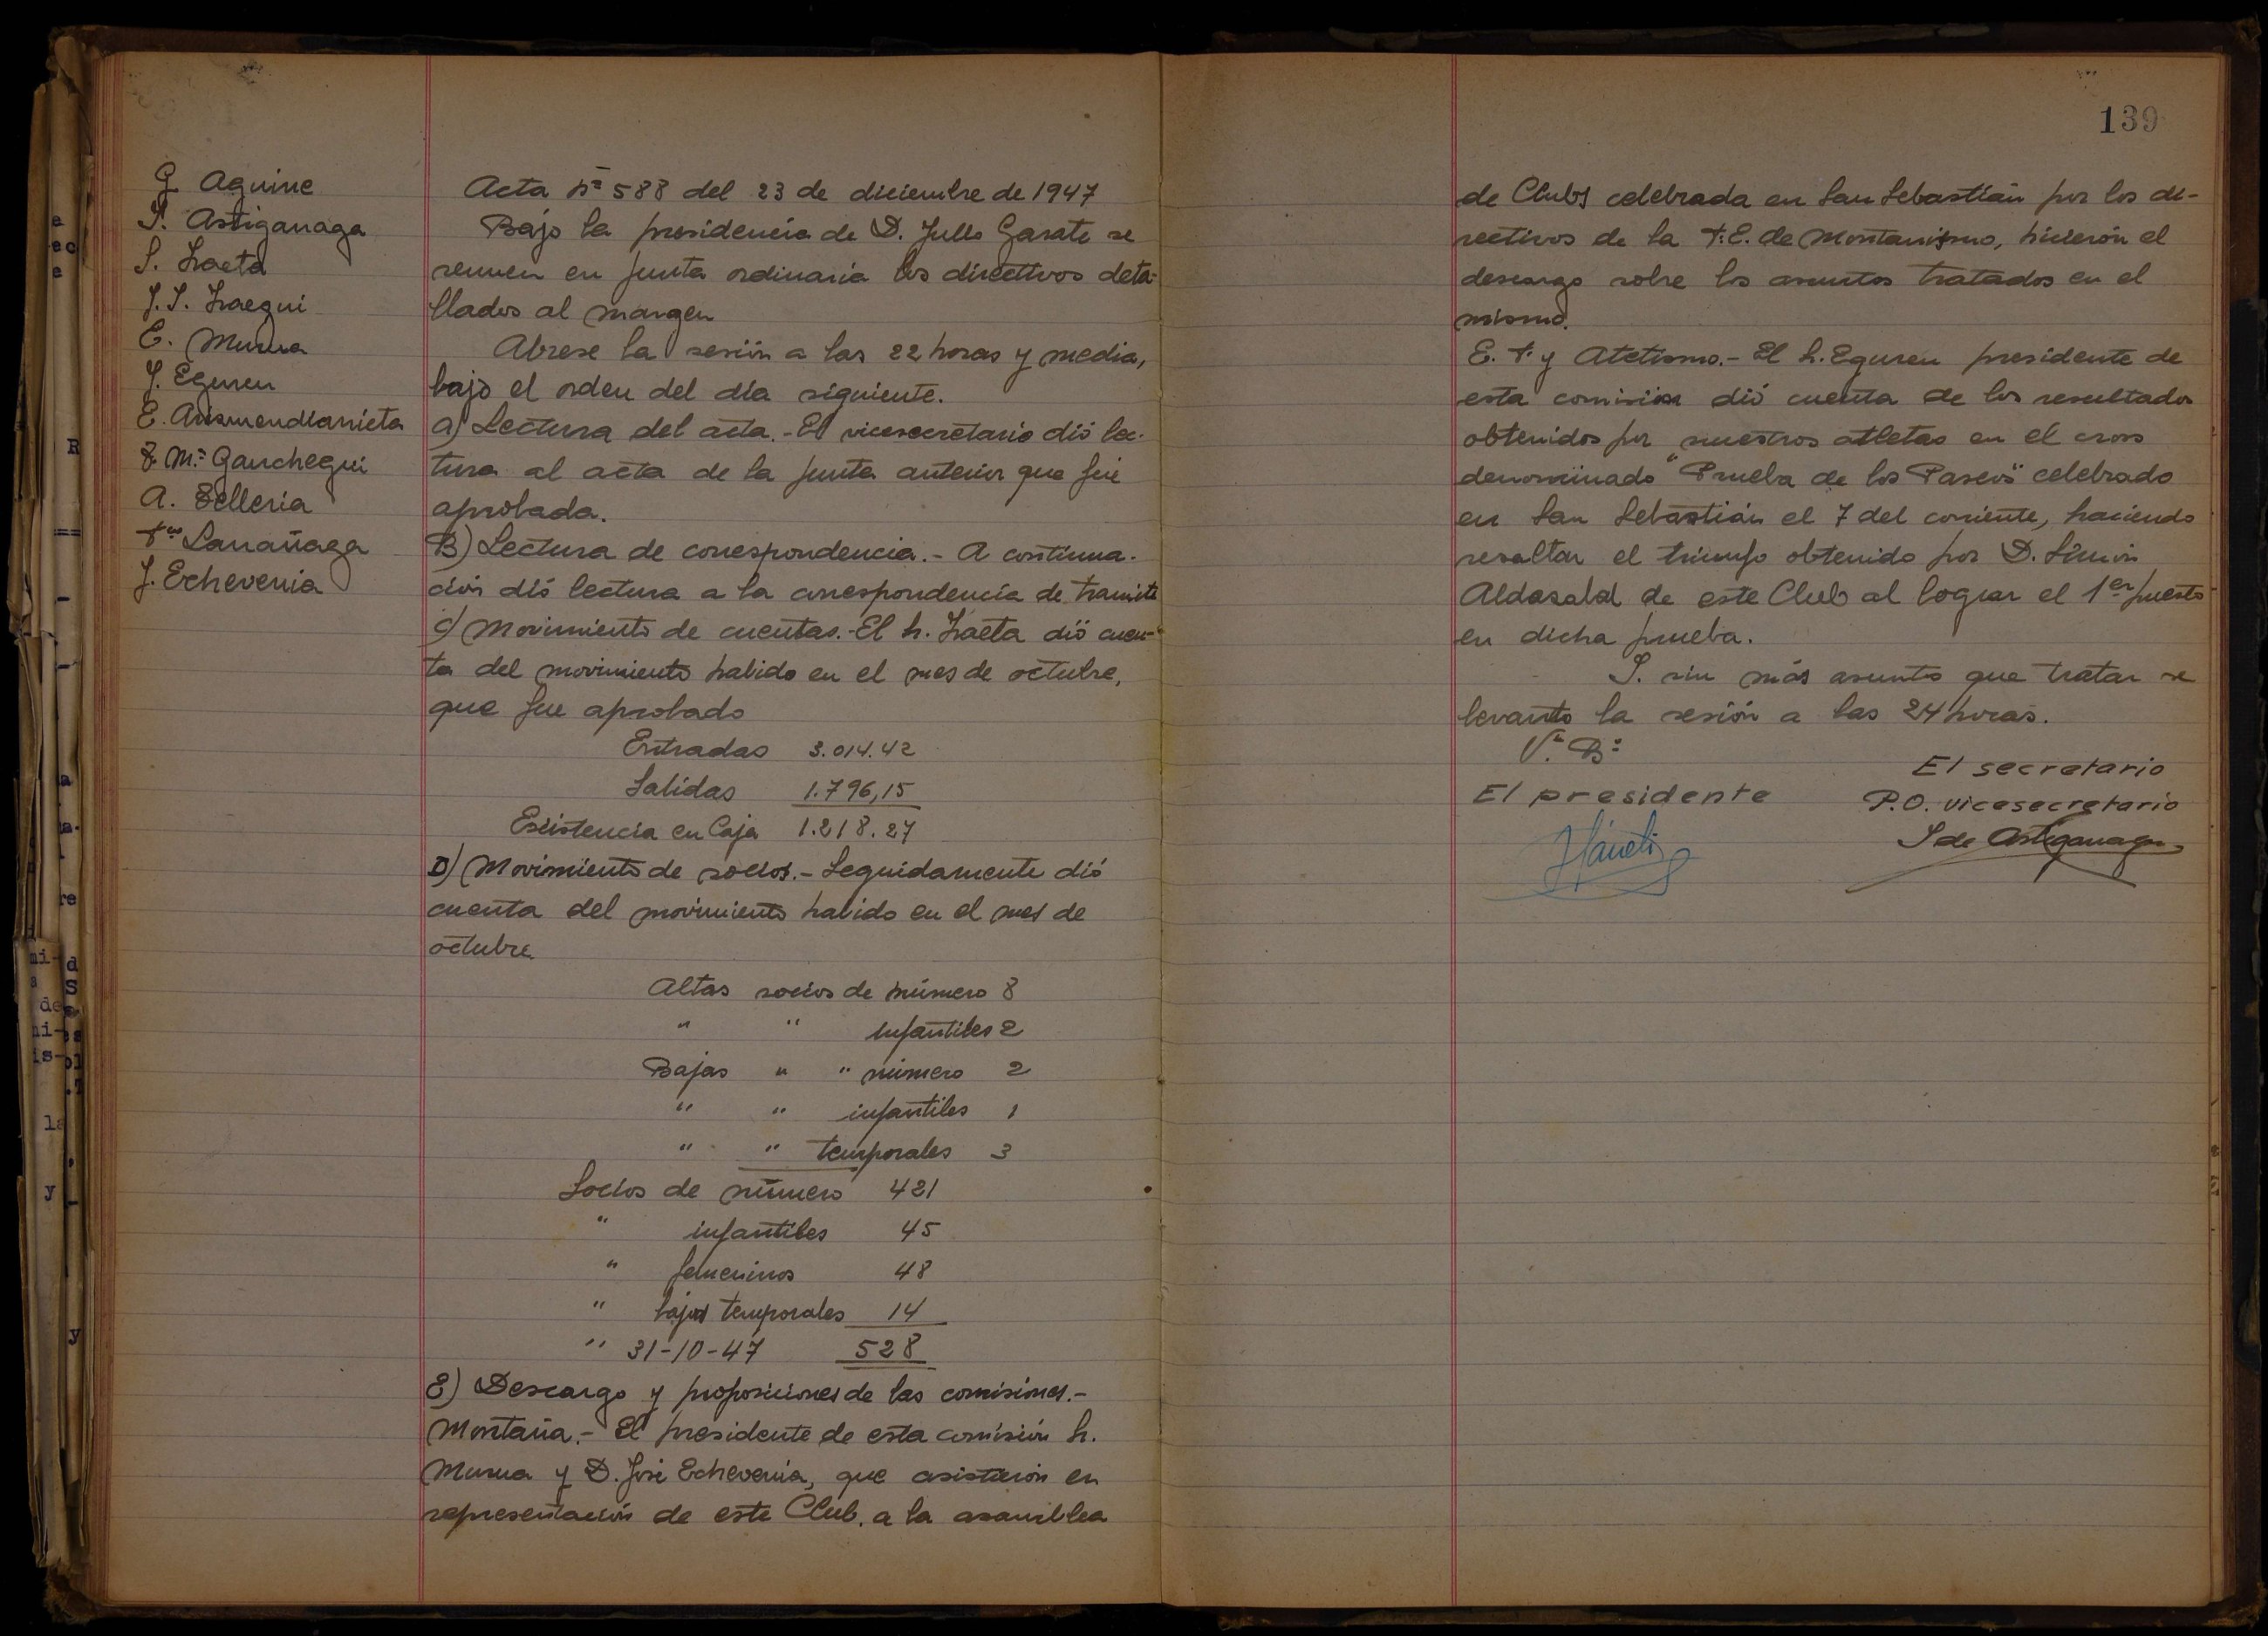 G Aguirre
I. Astiganaga
S. Iraeta
J.I. Iraegui
E. Murua
J. Eguren
E. Arismendiarrieta
J. Mª Gauchegui
A. Telleria
Fco Larrañaga
J. Echeverria
Acta Nº 588 del 23 de diciembre de 1947
Bajo la presidencia de D. Julio Garate se
reunen en junta ordinaria los directivos deta-
llados al margen
Abrese la sesión a las 22 horas y media,
bajo el orden del día siguiente.
a) Lectura del acta.- El vicesecretario dió lec-
tura al acta de la junta anterior que fué
aprobada.
B) Lectura de correspondencia.- A continua-
ción dió lectura a la correspondencia de tramite
C) Movimiento de cuentas.- El Sr. Iraeta dió cuen-
ta del movimiento habido en el mes de octubre,
que fue aprobado
Entradas 3.014.42
Salidas 1.796,15
Existencia en Caja 1.218.27
D) Movimiento de socios.- Seguidamente dió
cuenta del movimiento habido en el mes de
octubre
Altas socios de número 8
" " infantiles 2
Bajas " " número 2
" " infantiles 1
" " temporales 3
Socios de número 421
" infantiles 45
" femeninos 48
" bajas temporales 14
" 31-10-47 528
E) Descargo y proposiciones de las comisiones.-
Montaña.- El presidente de esta comisión Sr.
Murua y D. José Echeverria, que asistierón en
representación de este Club, a la asamblea
139
de Clubs celebrada en San Sebastián por los di-
rectivos de la F.E. de Montanismo, hicierón el
descargo sobre los asuntos tratados en el
mismo.
E. F. y Atetismo.- El Sr. Eguren presidente de
esta comision dió cuenta de los resultados
obtenidos por nuestros atletas en el cross
denominado "Prueba de los Paseos" celebrado
en San Sebastián el 7 del corriente, haciendo
resaltar el triunfo obtenido por D. Simón
Aldasabal de este Club al lograr el 1er puesto
en dicha prueba.
I. sin más asunto que tratar se
levanto la sesión a las 24 horas.
Vº Bº
El secretario
El presidente
P.O. vicesecretario
I de Astiganaga